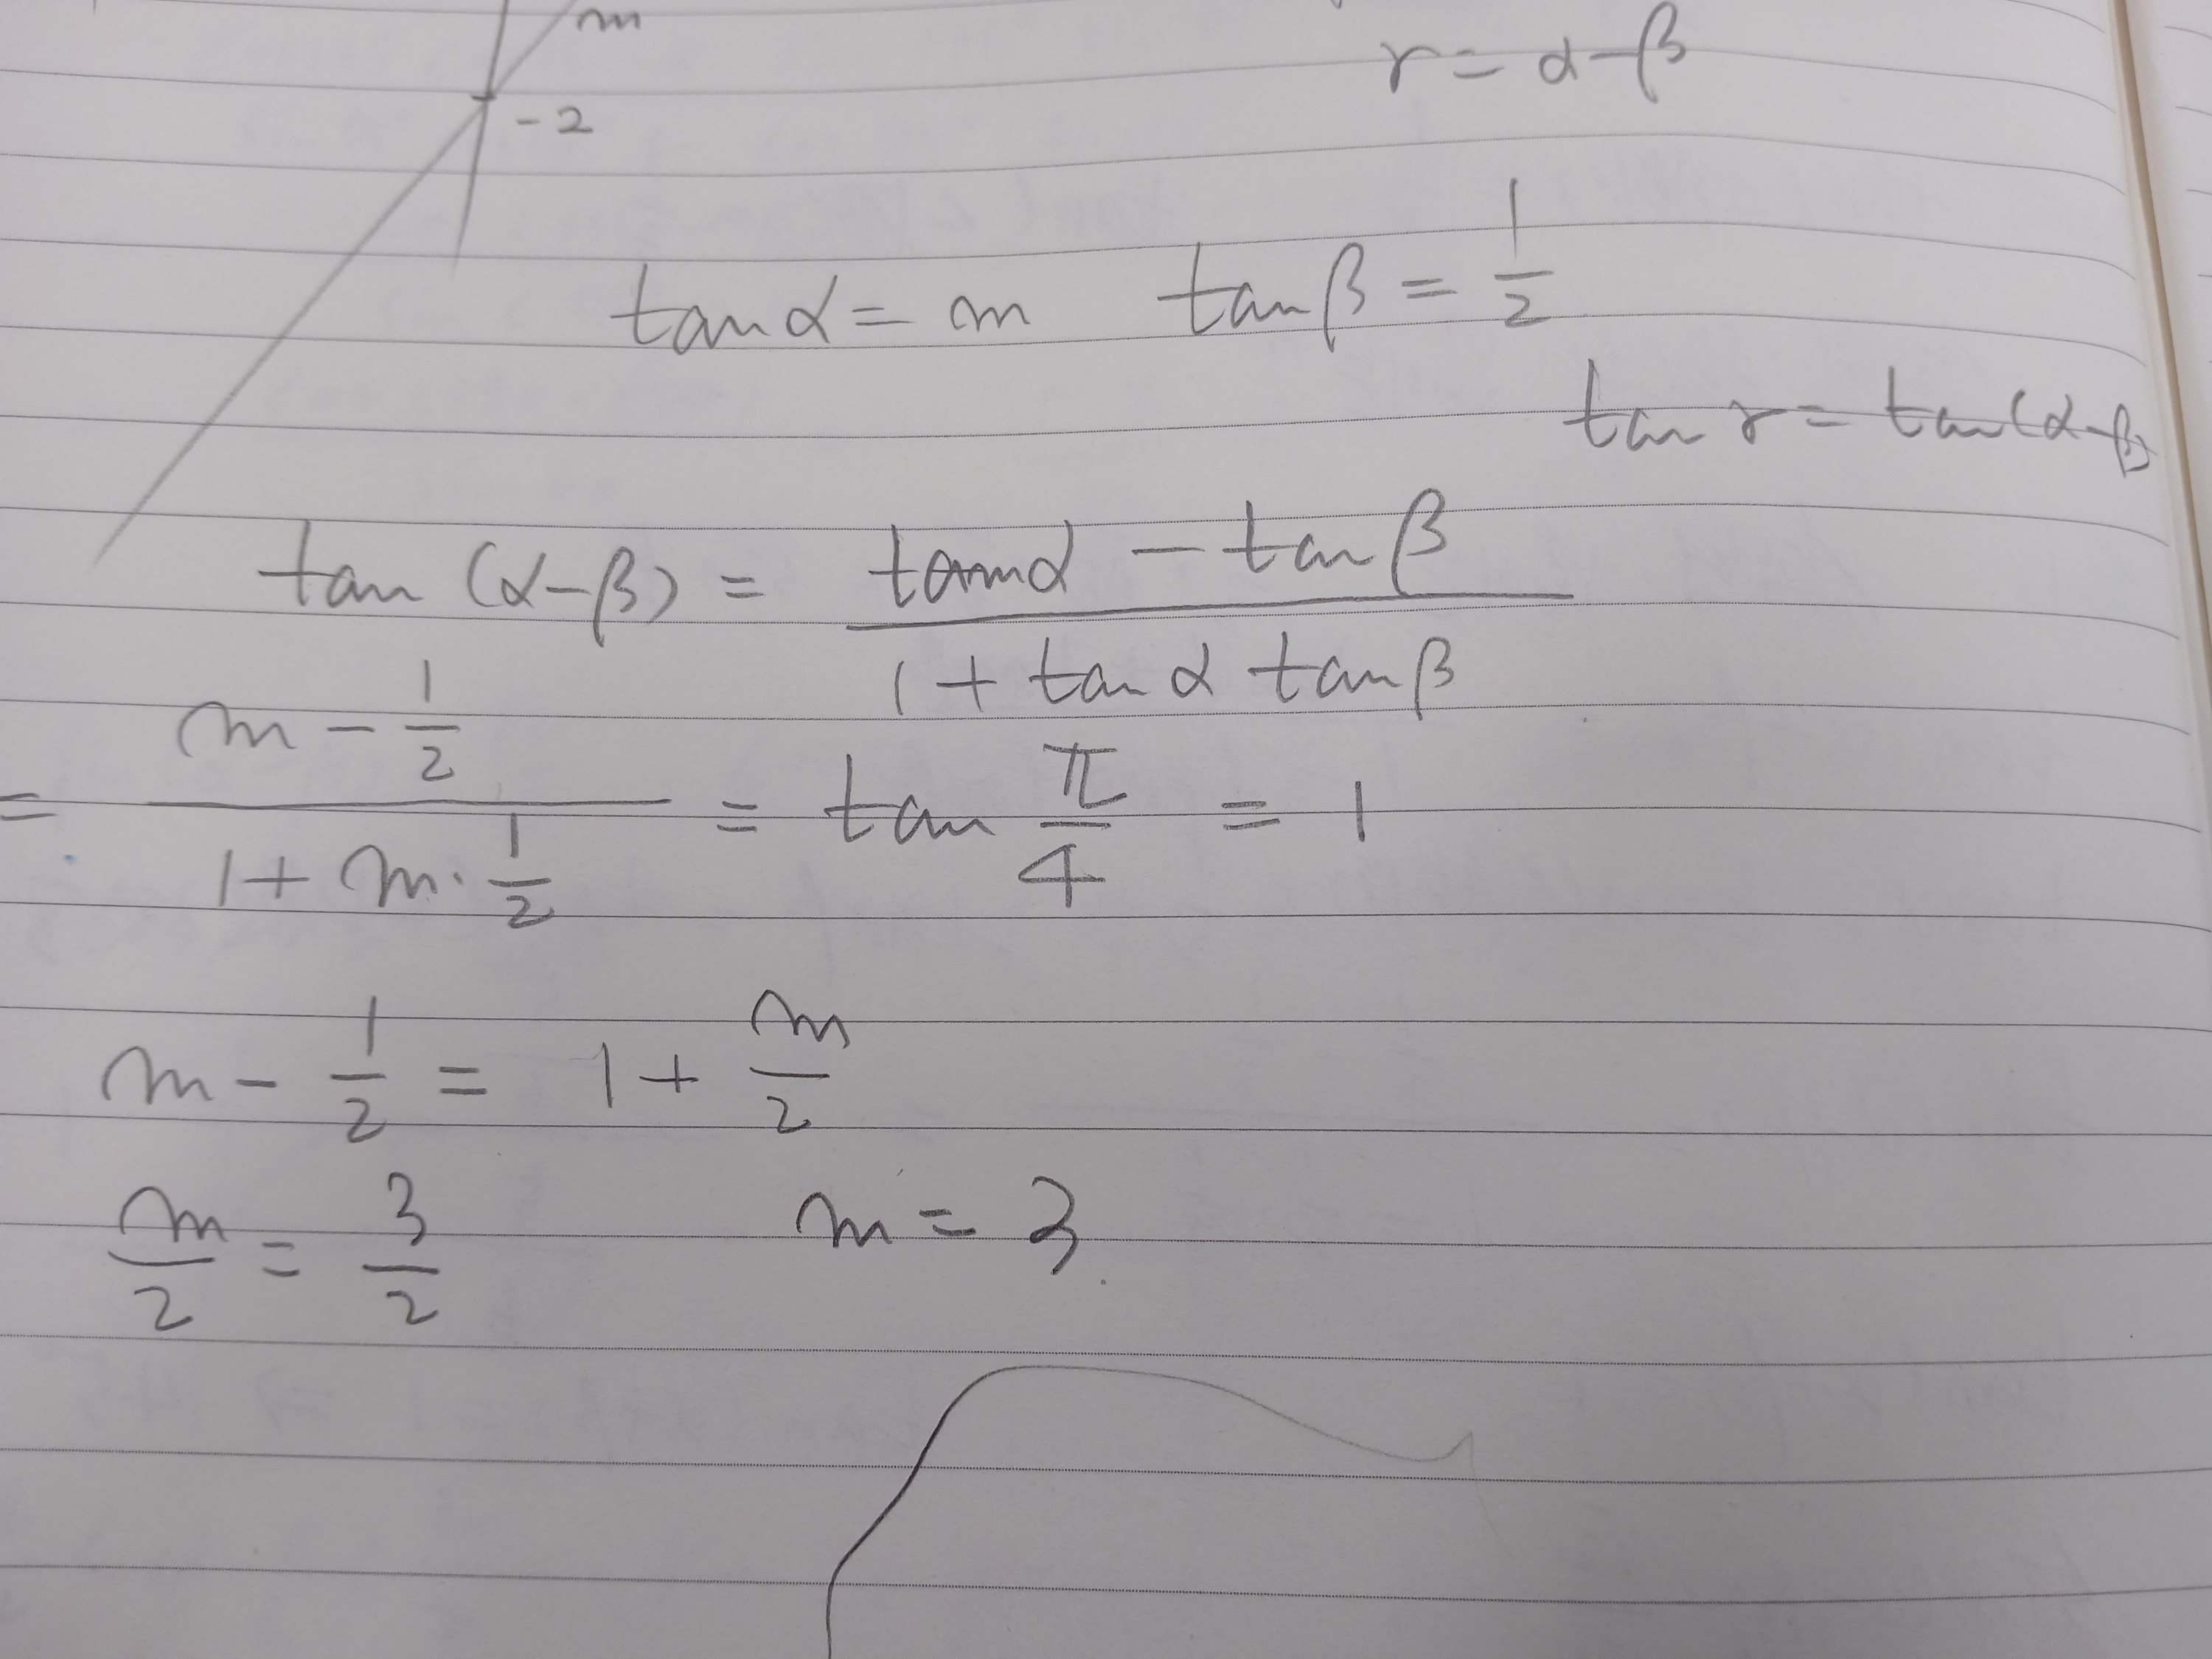 m
r = α-β
-2
tan α = m   tan β = 1/2
tan r = tan(α-β)
tan (α-β) = (tan α - tan β)/(1 + tan α tan β)
= (m - 1/2)/(1 + m · 1/2) = tan π/4 = 1
m - 1/2 = 1 + m/2
m/2 = 3/2   m = 3.